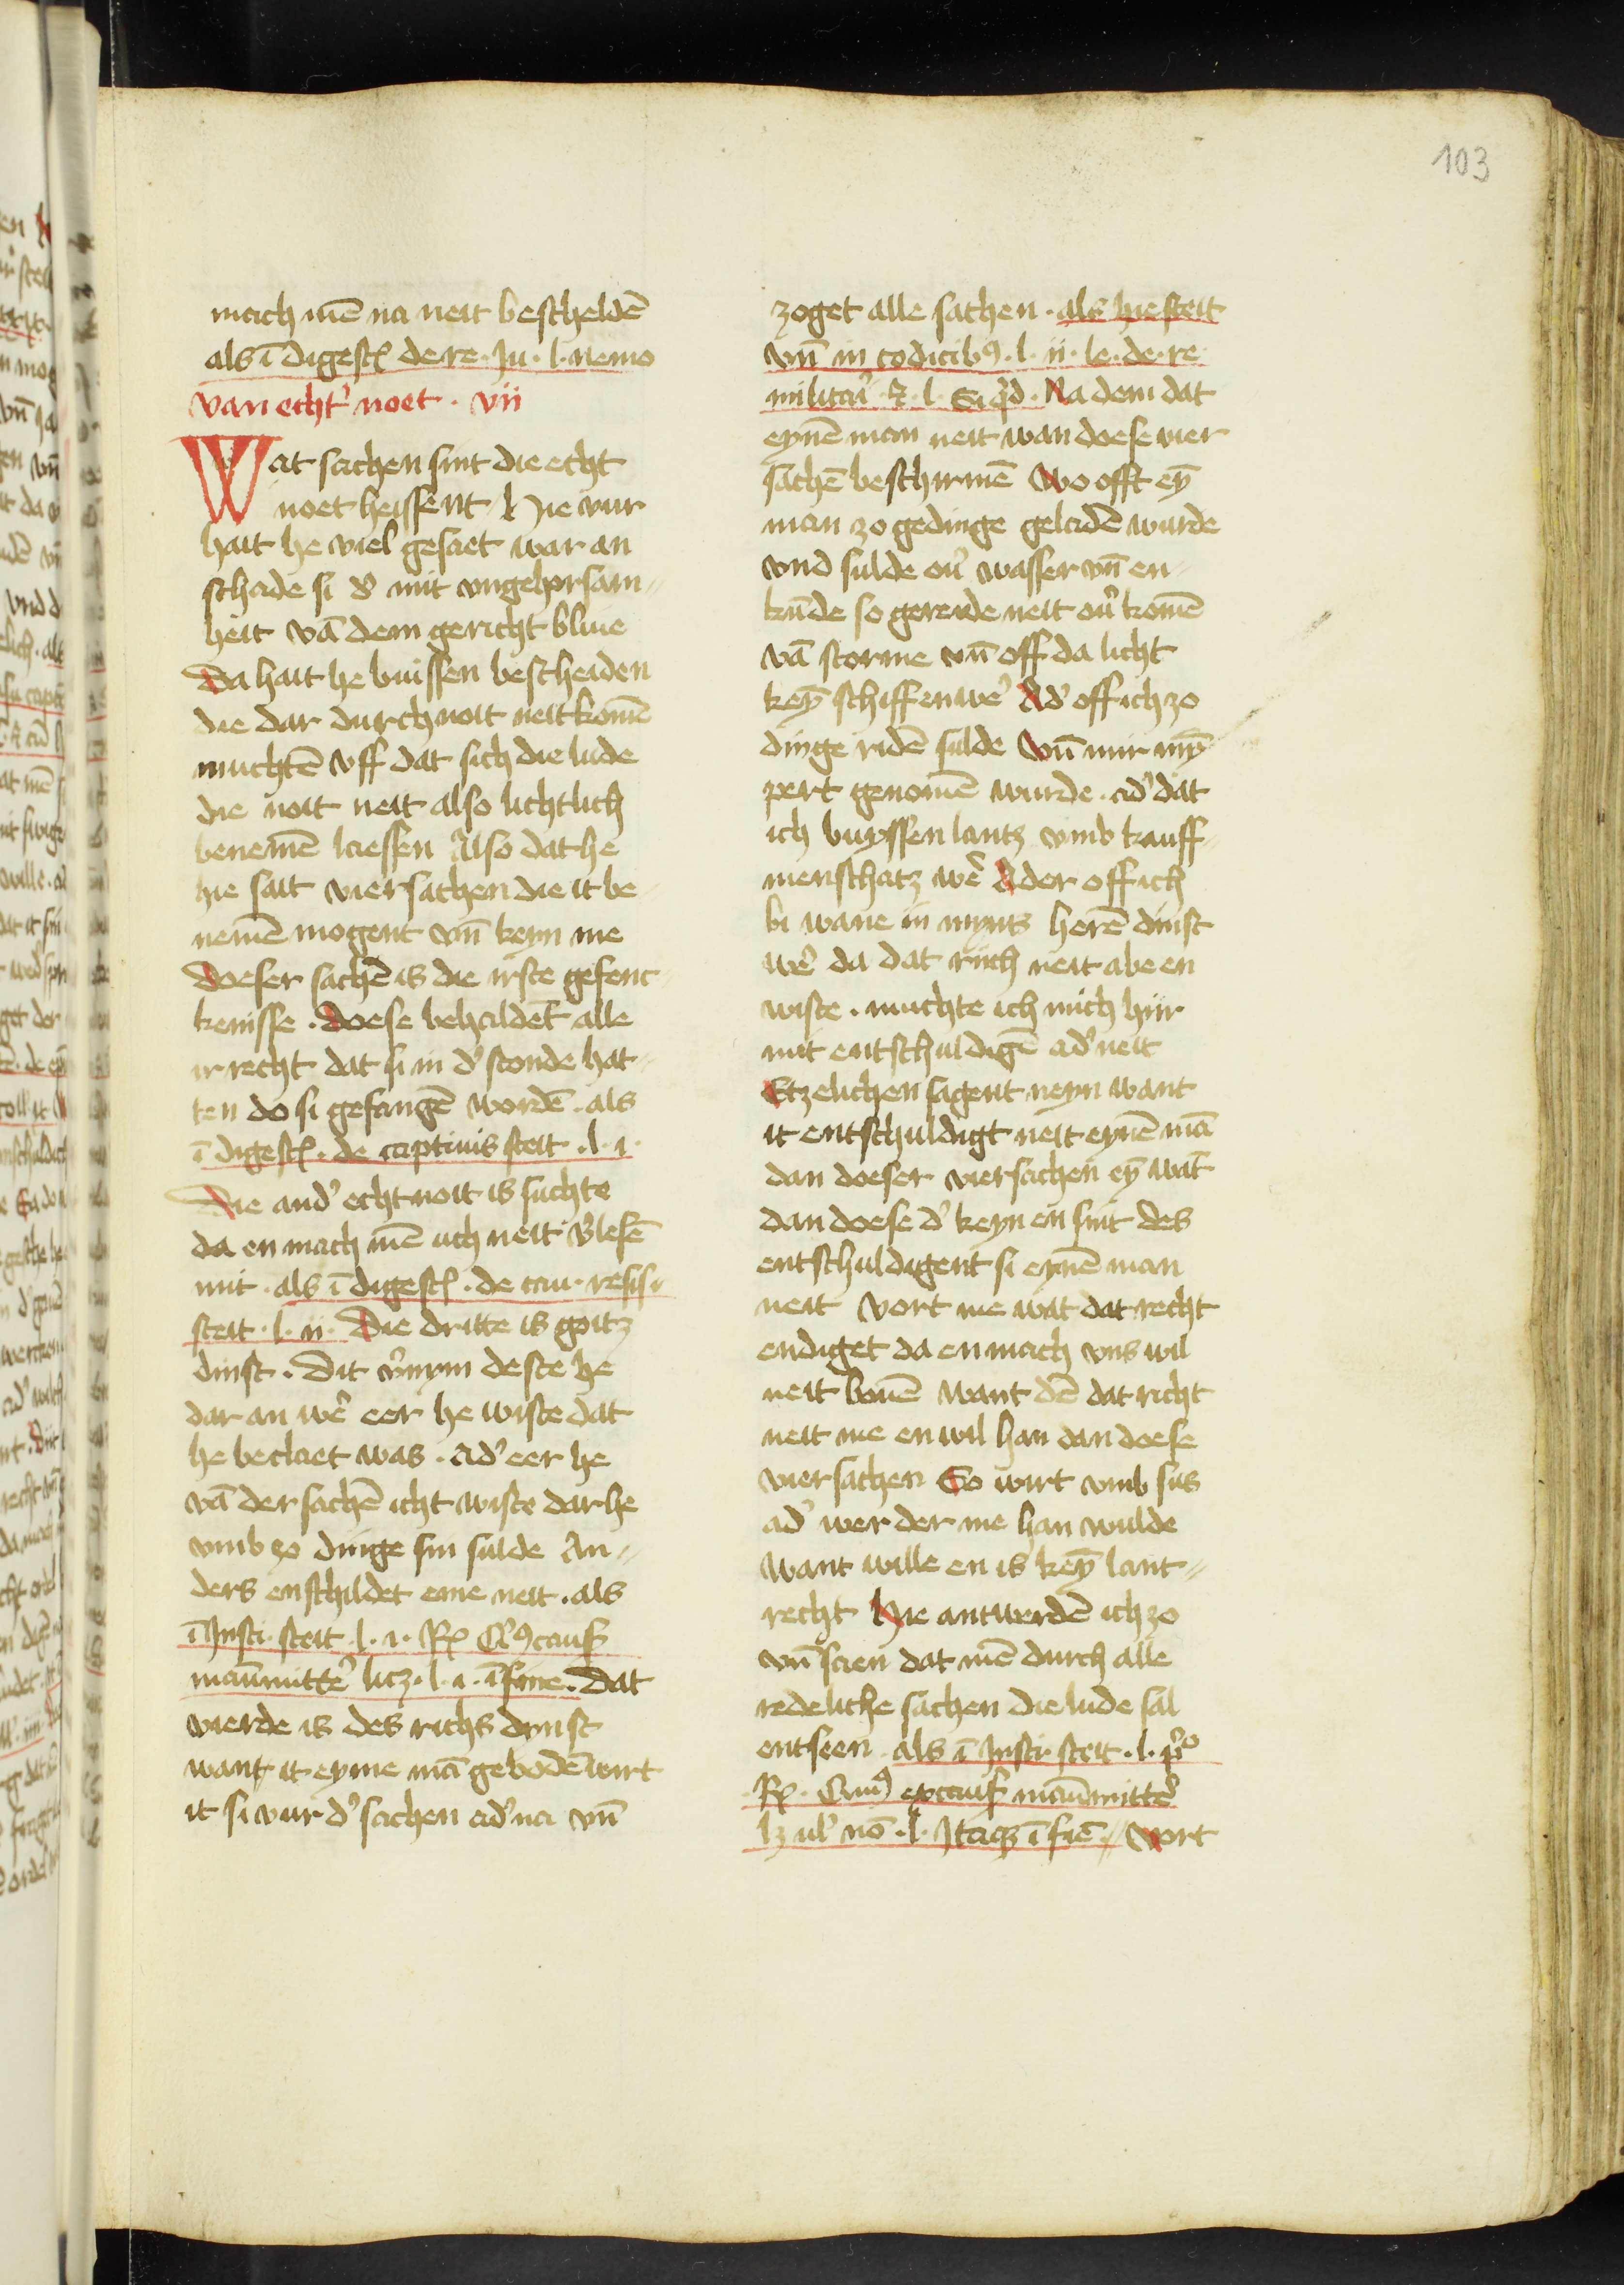 103
mach mē na neit bescheldē
als ī digestꝭ de re · Ju · l · nemo
van echt' noet · vii
Wat sachen sint die echt
noet heissent Hie vur
hait he viel gesaet war an
schade si d' mit vngehorsam-
heit vā dem gericht bliue
Da hait he buissen bescheiden
die dar durch noit neit komē
muchtē vff dat sich die lude
die noit neit also lichtlich
benemē laessen Also dat he
hie sait vier sachen die it be
nemē mogent vn̄ keyn me
doeser sachē is die irste gefenc
kenisse · doese behaldēt alle
ir recht dat si in d' stonde hat-
ten do si gefangē wordē · als
ī digestꝭ · de captiuis steit · l · i ·
Die and' echt noit is suchte
da en mach mē uch neit v'lesē
mit · als ī digestꝭ · de cau · resis ·
steit · l · ii · Die dritte is goitz
dinst · Dit v'nym deste he
dar an we' eer he wiste dat
he beclaet was · ad' eer he
vā der sachē icht wiste dar he
vmb zo dinge sin sulde An-
ders enschildet eme neit · als
ī Insti · steit · l · i · Rꝭ
manūmitte' licz · l · i · ī fine · Dat
vierde is des richs dinst
want it eyme mā gebodē wirt
it si vur d' sachen ad' na vn̄
zoget alle sachen · als hie steit
vn̄ in codicibꝰ · l · ii · le · de · re
militari' · Na dem dat
eynē man neit wan doese vier
sachē beschirmē Wo offt eȳ
man zo gedinge geladē wurde
vnd sulde ou' wasser vn̄ en-
kūde so gereide neit ou' komē
vā storme vn̄ off da licht
keȳ schiff enwe' Ad' off ich zo
dinge ridē sulde vn̄ mir mȳ
pert genomē wurde · ad' dat
ich buyssen lantz vmb kauff-
menschatz we' Ader off ich
bi wane in myns herē dinst
we' da dat rich neit abe en
wiste · muchte ich mich hur
mit entschuldigē ad' neit
Etzelichen sagent neyn want
it entschuldigt neit eynē mā
dan doeser vier sachen eȳ wāt
dan doese d' keyn en sint des
entschuldigent si eynē man
neit Vort me wat dat recht
endiget da en mach vns wil
neit bouē want dē dat richt
neit me en wil han dan doese
vier sachen So wirt vmb sus
ad' wer der me han wulde
want wille en is keȳ lant-
recht Hie antwerdē ich zo
vn̄ saen dat mē durch alle
redeliche sachen die lude sal
entseen als ī Insti · steit · l · p'o
Rꝭ · ex causꝭ manūmitte'
lz ul' nō · l · Itaqꝫ ī fiē · Vort